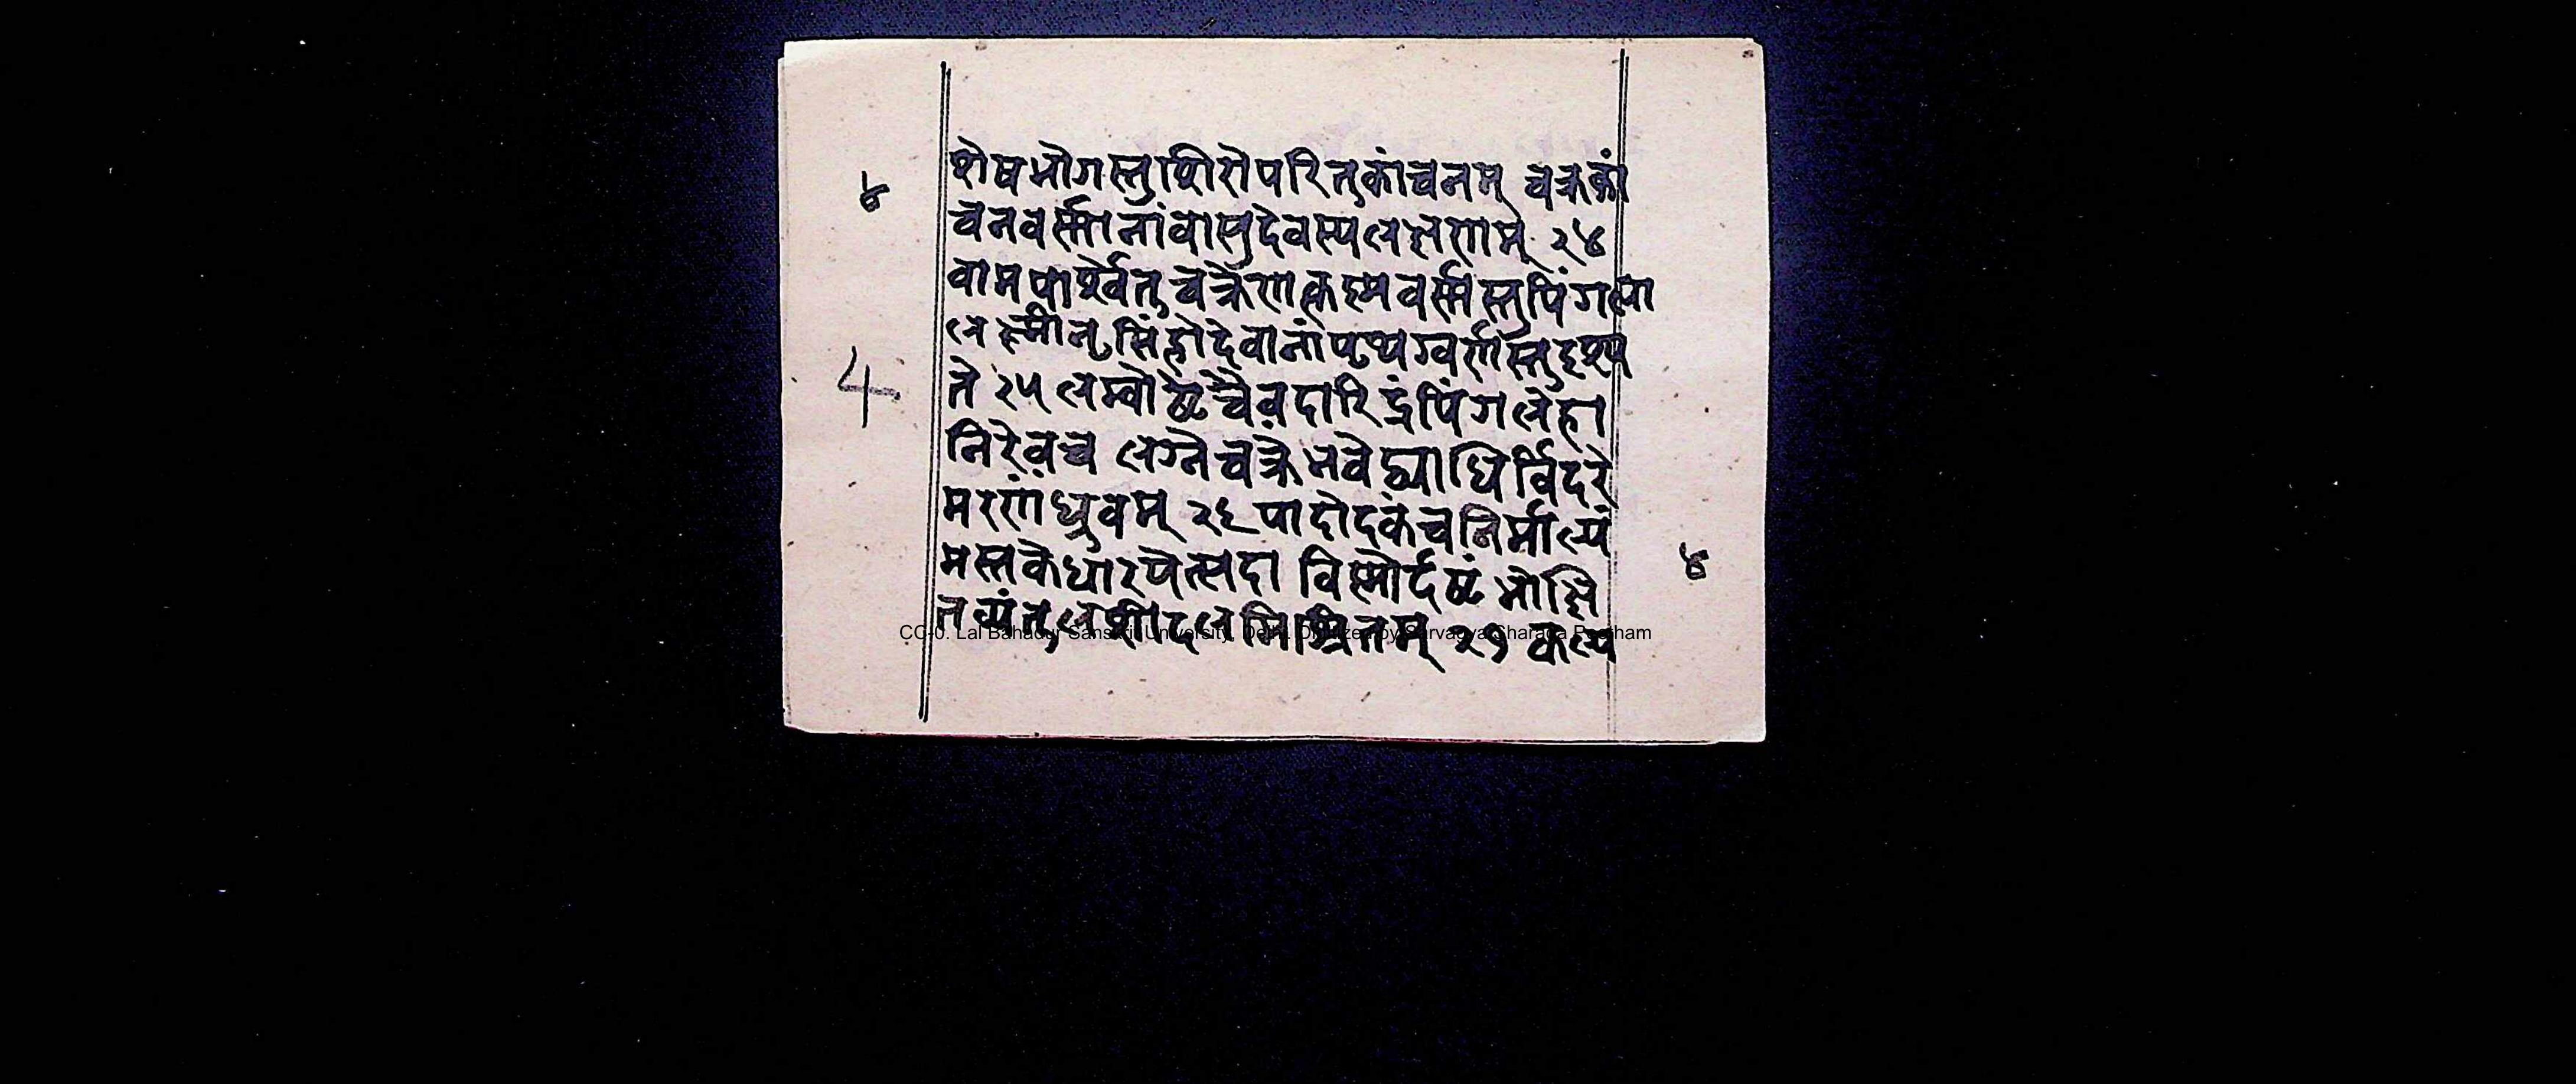 ४
शेषभोगस्तुशिरोपरितुकांचनम् चक्रकां
चनवर्स्मानांवासुदेवस्यलक्षणम् २४
वामपार्श्वेतुचक्रेणकृष्मवर्स्मस्तुपिंगला
4
लक्ष्मीनृसिंहोदेवानांपृथग्वर्णास्तुदृश्य
ते २५ लम्वोष्टंचैवदारिद्रंपिंगलेहा
निरेवच लग्नेचक्रेभवेद्व्याधिर्विदरे
मरणंध्रुवम् २६ पादोदकंचनिर्माल्यं
मस्तकेधारयेत्सदा विष्मोर्दष्टंभोक्षि
४
तव्यंतुलशीदलमिश्रितम् २७ कल्प
CC-0. Lal Bahadur Sanskrit University, Delhi. Digitized by Sarvagya Sharada Peetham